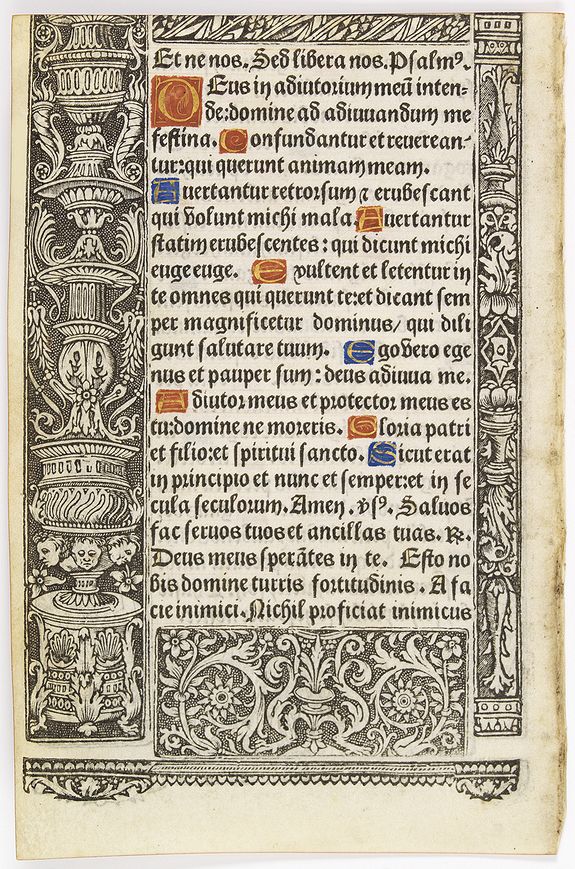 Et ne nos. Sed libera nos. Psalmꝰ.
DEus in adiutorium meū inten-
de: domine ad adiuuandum me
festina. Confundantur et reuerean-
tur: qui querunt animam meam.
Auertantur retrorsum ⁊ erubescant
qui volunt michi mala. Auertantur
statim erubescentes: qui dicunt michi
euge euge. Exultent et letentur in
te omnes qui querunt te: et dicant sem
per magnificetur dominus/ qui dili
gunt salutare tuum. Ego vero ege
nus et pauper sum: deus adiuua me.
Adiutor meus et protector meus es
tu: domine ne moreris. Gloria patri
et filio: et spiritui sancto. Sicut erat
in principio et nunc et semper: et in se
cula seculorum. Amen. v̄sꝰ. Saluos
fac seruos tuos et ancillas tuas. ℞.
Deus meus sperātes in te. Esto no
bis domine turris fortitudinis. A fa
cie inimici. Nichil proficiat inimicus